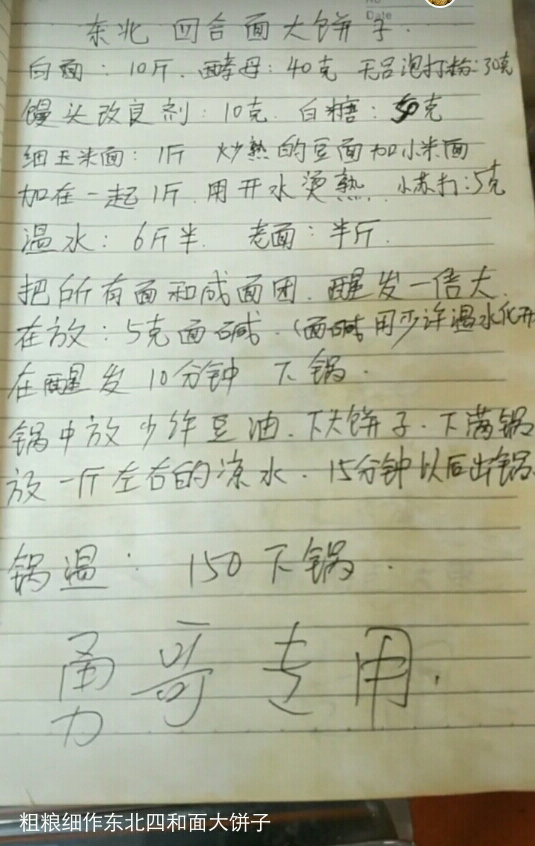 东北 四合面大饼子.
白面：10斤. 酵母：40克 无铝泡打粉：30克
馒头改良剂：10克. 白糖：50克
细玉米面：1斤 炒熟的豆面加小米面
加在一起1斤. 用开水烫熟. 小苏打：5克
温水：6斤半. 老面：半斤.
把所有面和成面团. 醒发一倍大
在放：5克面碱.（面碱用少许温水化开
在醒发10分钟 下锅.
锅中放少许豆油. 下大饼子. 下满锅
放一斤左右的凉水. 15分钟以后出锅.
锅温：150下锅.
勇哥专用.
粗粮细作东北四和面大饼子